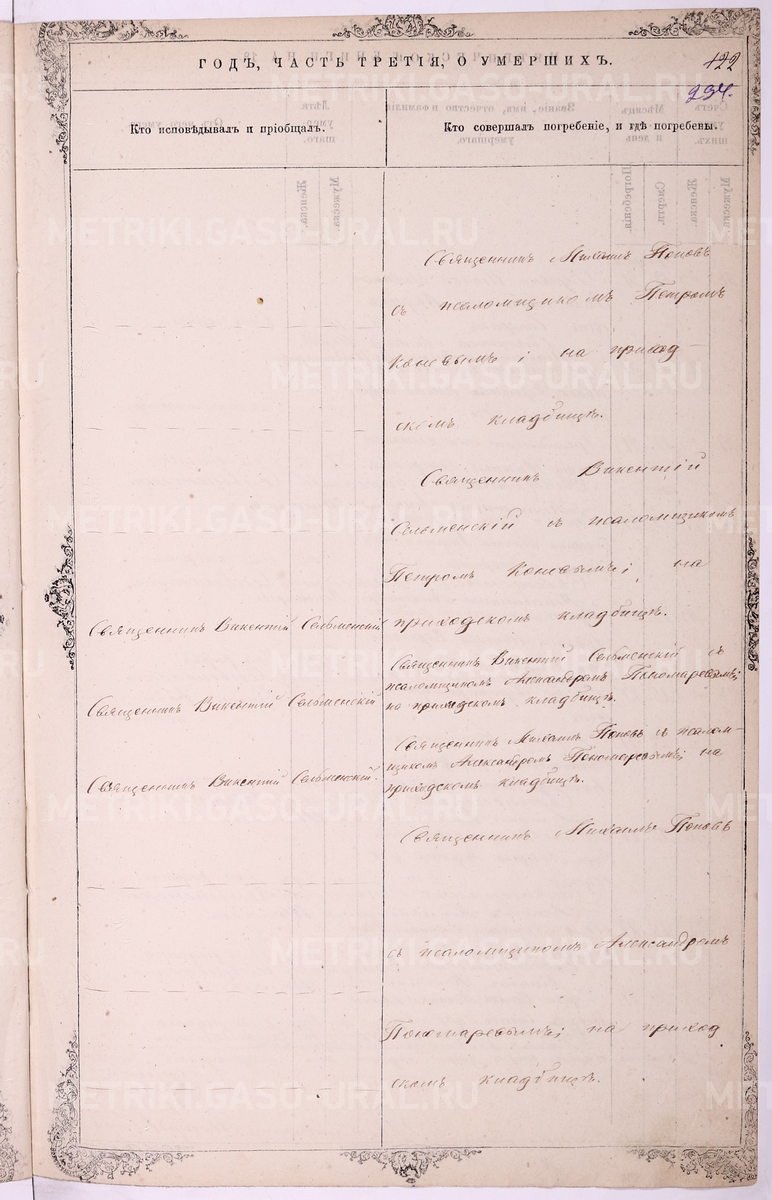 ГОДЪ, ЧАСТЬ ТРЕТІЯ, О УМЕРШИХЪ.
122
234.
Кто исповѣдывалъ и пріобщалъ.
Кто совершалъ погребеніе, и гдѣ погребены.
Священникъ Михаилъ Поповъ
съ псаломщикомъ Петромъ
на приход-
скомъ кладбищѣ.
Священникъ Викентій
Сельменскій съ псаломщикомъ
Петромъ на
приходскомъ кладбищѣ.
Священникъ Викентій Сельменскій
Священникъ Викентій Сельменскій съ
псаломщикомъ Александромъ Пономаревымъ;
на приходскомъ кладбищѣ.
Священникъ Викентій Сельменскій
Священникъ Михаилъ Поповъ съ псалом-
щикомъ Александромъ Пономаревымъ; на
приходскомъ кладбищѣ.
Священникъ Викентій Сельменскій.
Священникъ Михаилъ Поповъ
съ псаломщикомъ Александромъ
Пономаревымъ; на приход
скомъ кладбищѣ.
METRIKI.GASO-URAL.RU